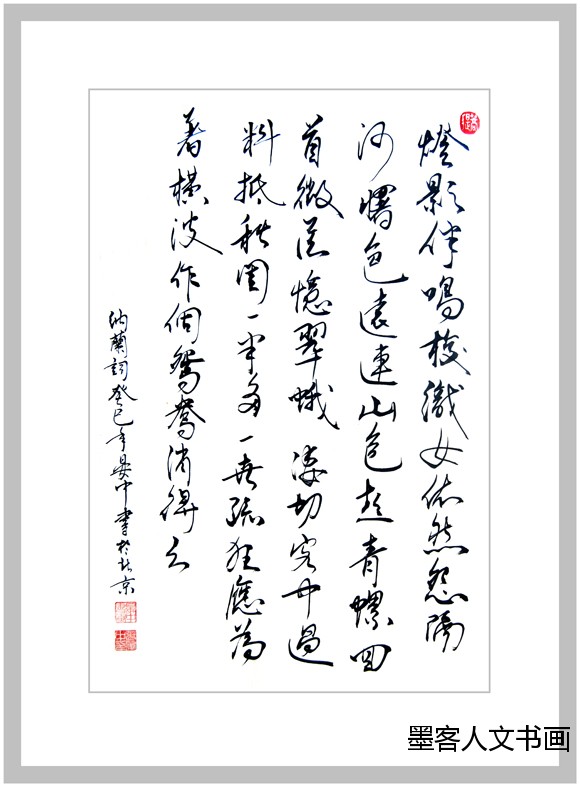 燈影伴鳴梭織女依然怨隔
河曙色遠連山色起青螺回
首微茫憶翠蛾淒切客中過
料抵秋閨一半多一世疏狂應為
著橫波作個鴛鴦消得么
納蘭詞癸巳年晏中書於北京
墨客人文书画